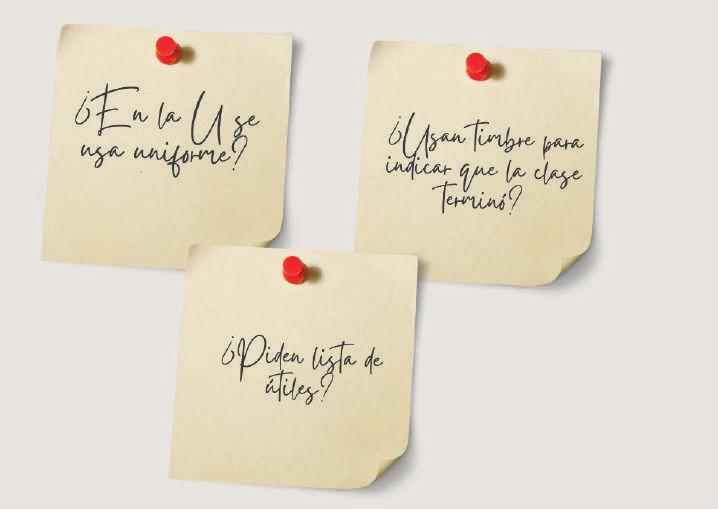 ¿En la U se
usa uniforme?
¿Usan timbre para
indicar que la clase
terminó?
¿Piden lista de
útiles?